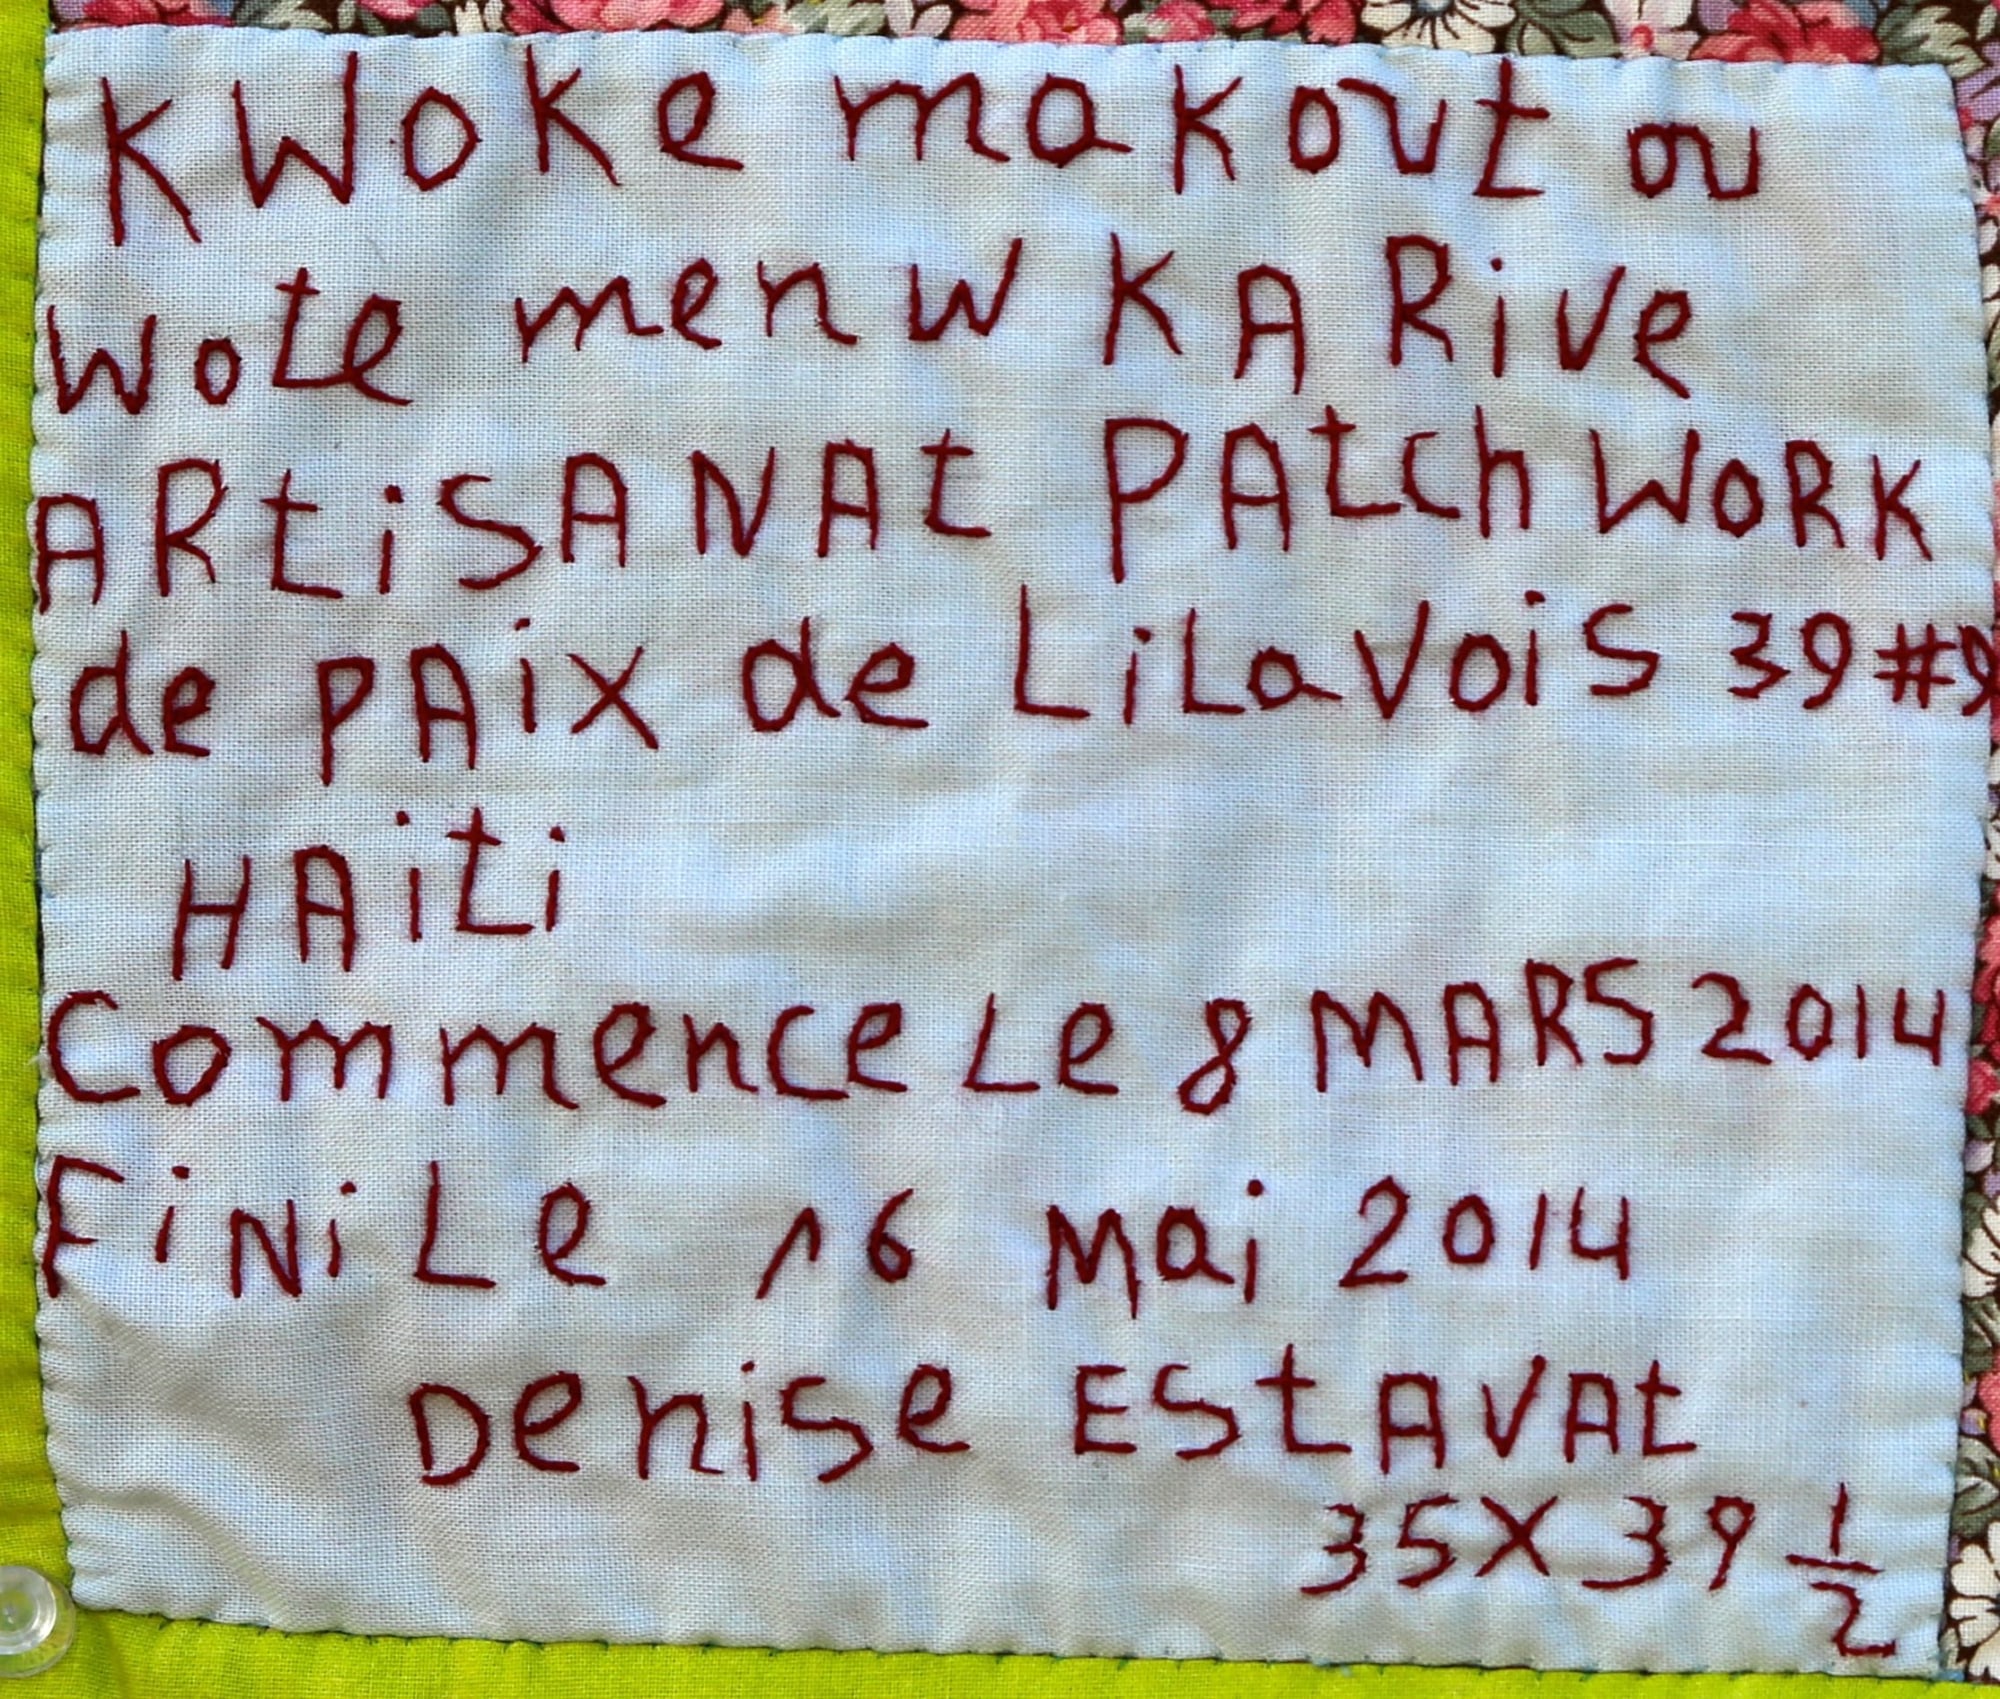 KWoKe makout ou
Wote men W KARive
ARtiSANAt PAtchWoRK
de PAix de LiLaVoiS 39#9
HAiti
Commence Le 8 MARS 2014
FiNi Le 16 Mai 2014
Denise EStAVAt
35X39 1/2